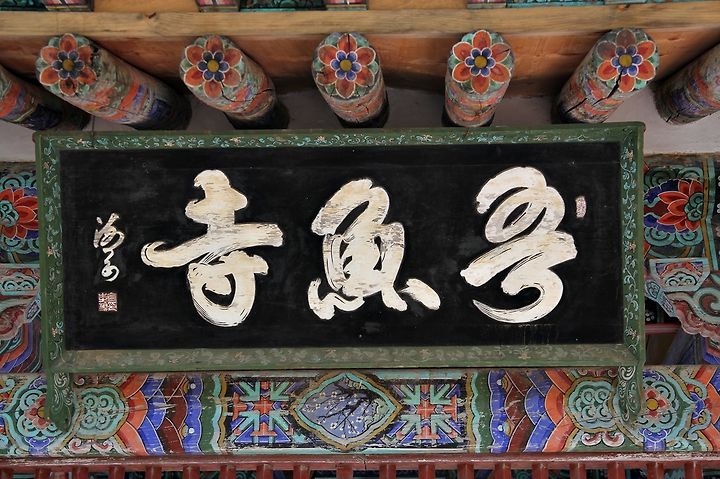 吾魚寺
海岡